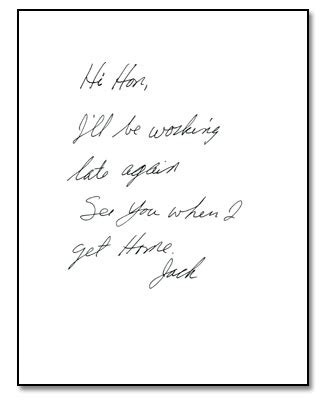 Hi Hon,
I'll be working
late again
See You when I
get Home.
Jack